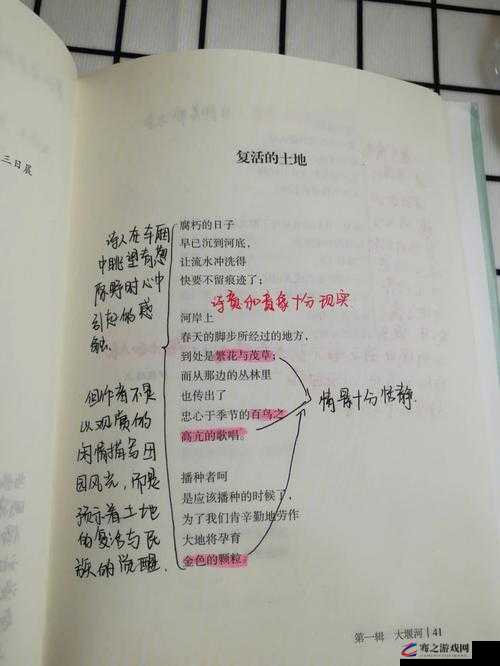 三日晨
复活的土地
腐朽的日子
早已沉到河底，
让流水冲洗得
快要不留痕迹了；
河岸上
春天的脚步所经过的地方，
到处是繁花与茂草；
而从那边的丛林里
也传出了
忠心于季节的百鸟之
高亢的歌唱。
播种者呵
是应该播种的时候了，
为了我们肯辛勤地劳作
大地将孕育
金色的颗粒。
诗人在车厢
中眺望有感
原野时心中
引起的感
触。
但作者不是
以观赏的
闲情描写田
园风光，而是
预示着土地
的复活与民
族的觉醒。
诗意和意象十分现实
情景十分恬静.
第一辑 大堰河 41
骞之游戏网